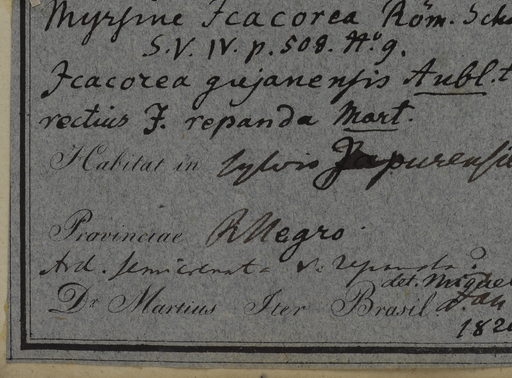 Myrsine Icacorea Röm. Sch
S.V. IV. p. 508. No 9.
Icacorea gujanensis Aubl. t
rectius I. repanda Mart.
Habitat in sylvis Japurensi
Provinciae R Negro
Ard. semicrenata v. repanda?
det. Miquel
Dr Martius Iter Brasil
182